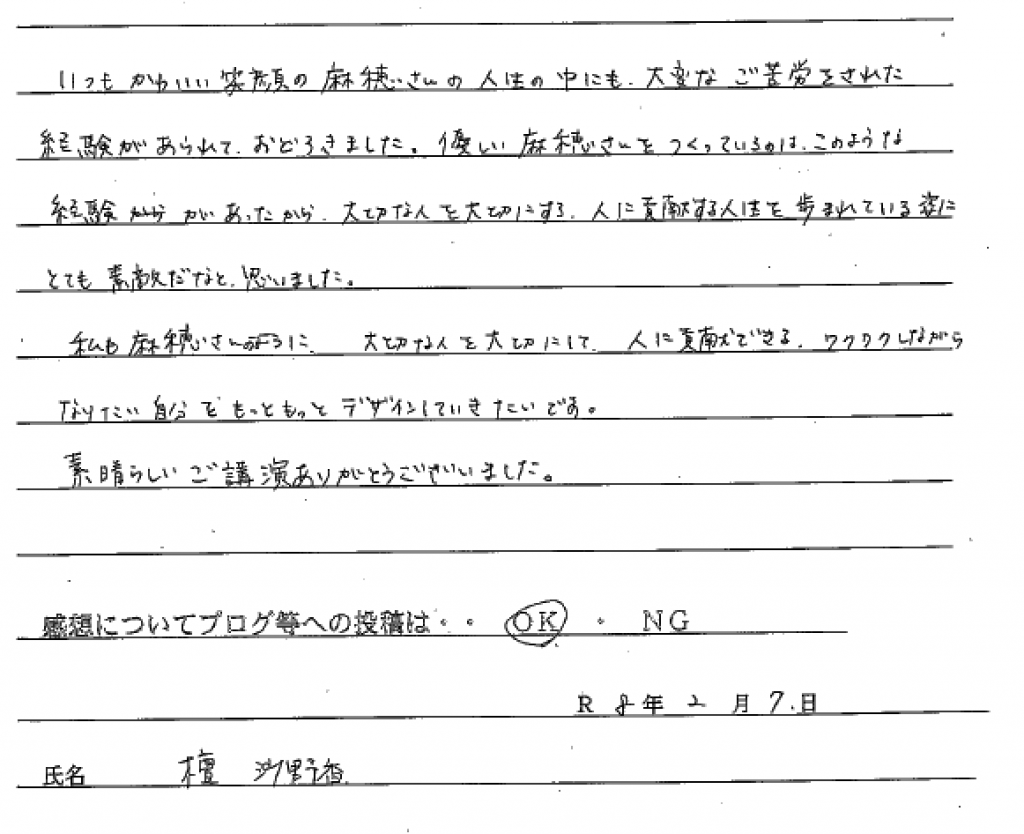 いつもかわいい笑顔の麻穂さんの人生の中にも、大変なご苦労をされた
経験があられて、おどろきました。優しい麻穂さんをつくっているのは、このような
経験からがあったから、大切な人を大切にする、人に貢献する人生を歩まれている姿に
とても素敵だなと、思いました。
私も麻穂さんのように、大切な人を大切にして、人に貢献できる、ワクワクしながら
なりたい自分をもっともっとデザインしていきたいです。
素晴らしいご講演ありがとうございました。
感想についてブログ等への投稿は・・ OK ・ NG
R 8年 2月 7.日
氏名 檀 沙野香